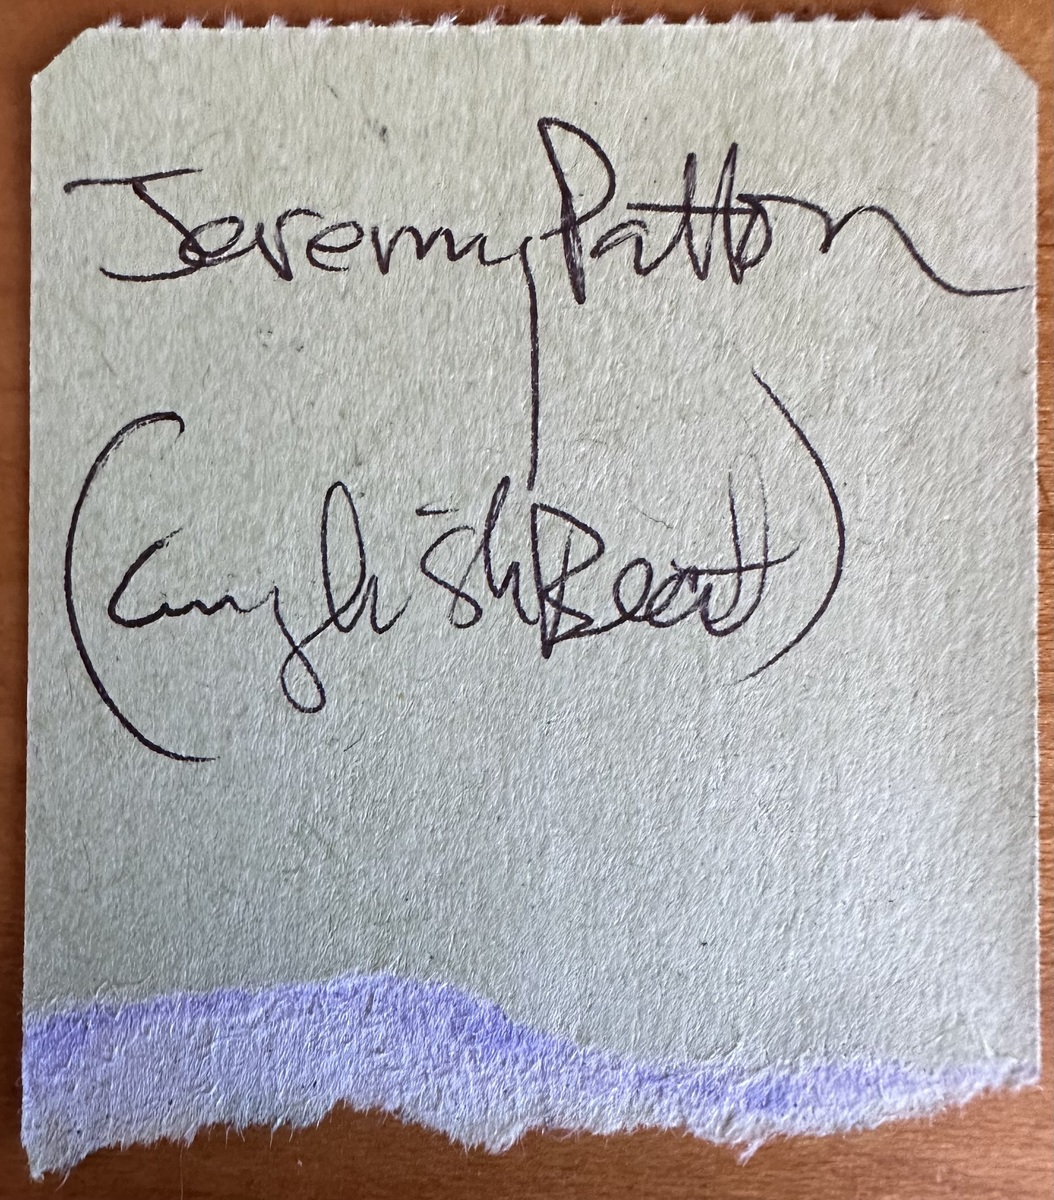 Jeremy Patton
(English Beat)